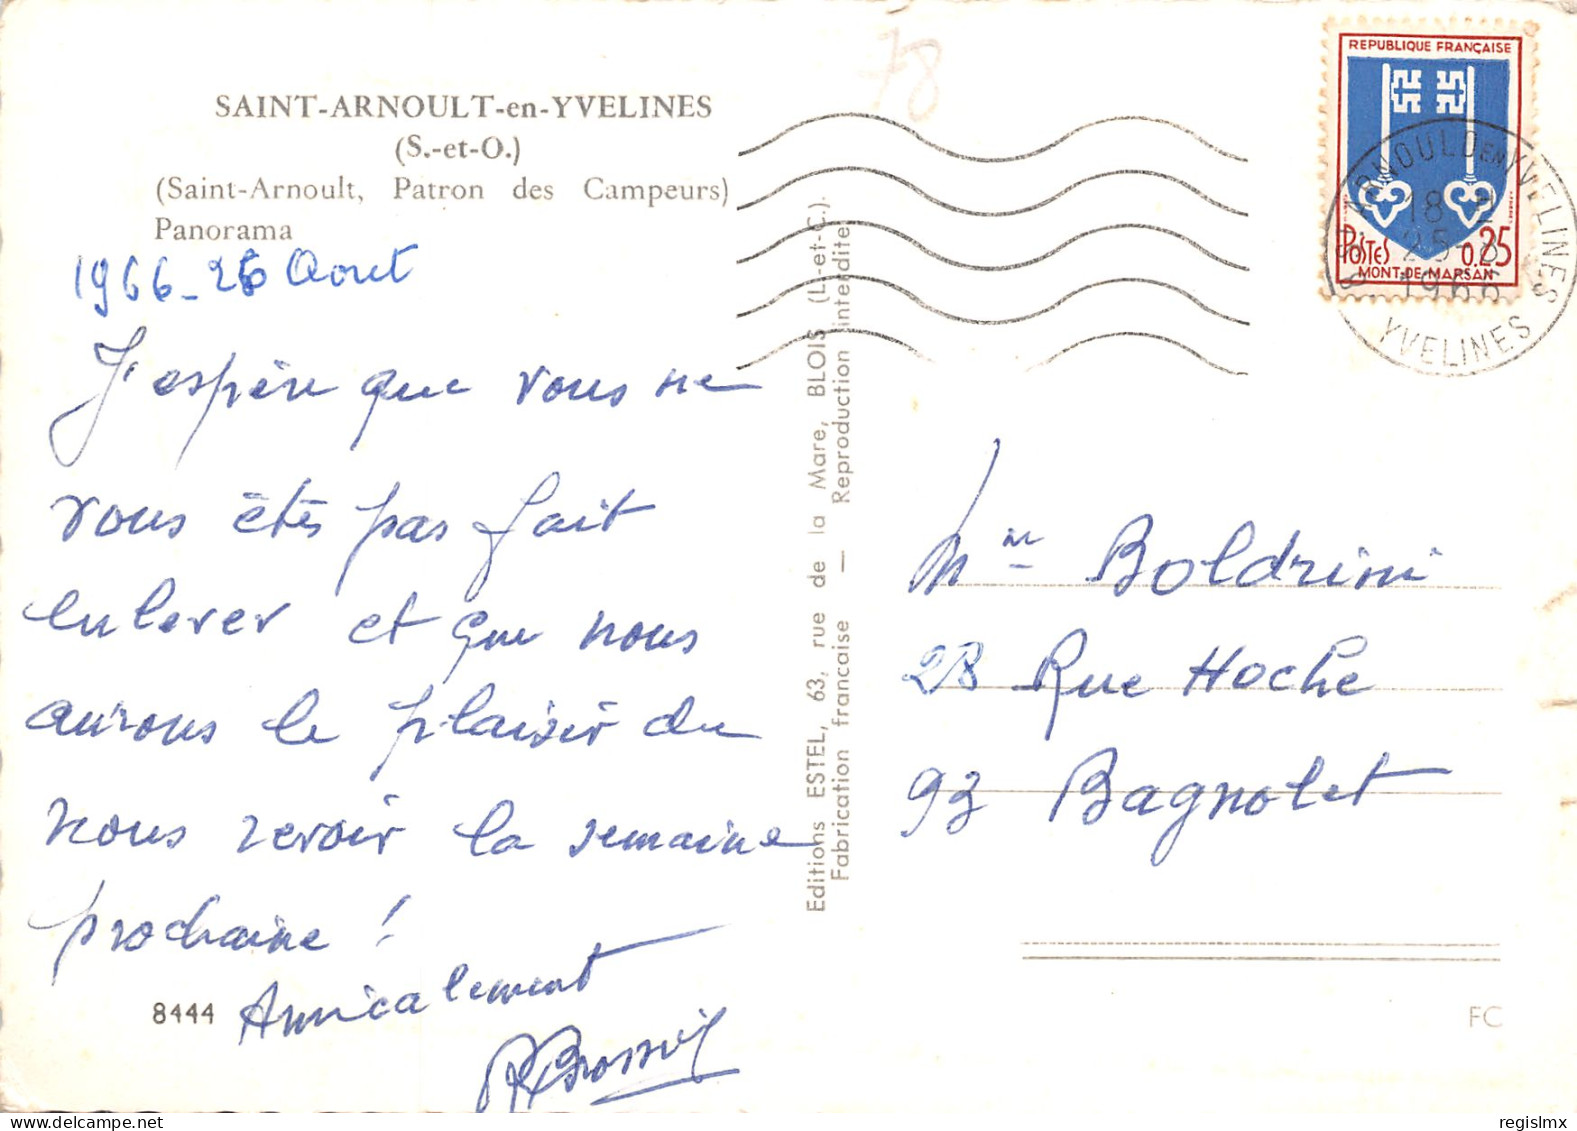 78
REPUBLIQUE FRANÇAISE
POSTES 0,25
MONT-DE-MARSAN
ST ARNOULD EN YVELINES
18 H
25-8
1966
YVELINES
SAINT-ARNOULT-en-YVELINES
(S.-et-O.)
(Saint-Arnoult, Patron des Campeurs)
Panorama
1966 - 26 Aout
J'espère que vous ne
vous êtes pas fait
enlever et que nous
aurons le plaisir du
nous revoir la semaine
prochaine !
Amicalement
8444
Editions ESTEL, 63, rue de la Mare, BLOIS (L.-et-C.).
Fabrication française — Reproduction interdite.
Mme Boldrini
28 Rue Hoche
93 Bagnolet
FC
regislmx